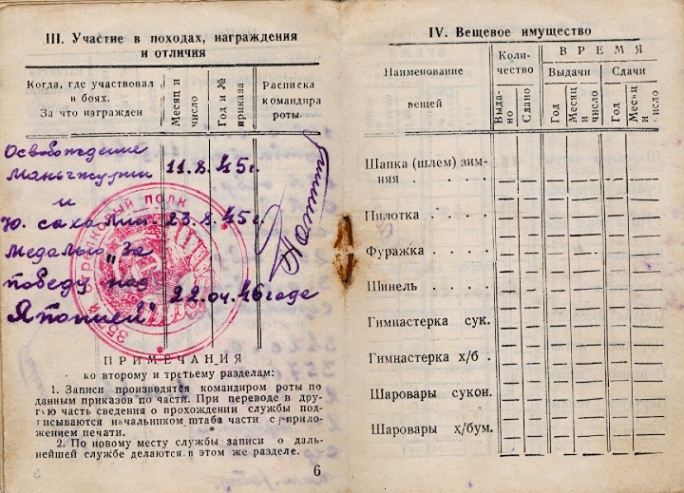 III. Участие в походах, награждения
и отличия
Когда, где участвовал
в боях.
За что награжден
Месяц и
число
Год и №
приказа
Расписка
командира
роты
Освобождение
Маньчжурии 11.8.45г.
и
Ю. сахалин 23.8.45г.
Медалью „За
победу над
Японией" 22.04.46 годе
СТРЕЛКОВЫЙ ПОЛК
ПРИМЕЧАНИЯ
ко второму и третьему разделам:
1. Записи производятся командиром роты по
данным приказов по части. При переводе в дру-
гую часть сведения о прохождении службы под-
писываются начальником штаба части с прило-
жением печати.
2. По новому месту службы записи о даль-
нейшей службе делаются в этом же разделе.
6
IV. Вещевое имущество
Наименование
вещей
Коли-
чество
ВРЕМЯ
Выдачи
Сдачи
Выда-
но
Сдано
Год
Месяц
и
число
Год
Месяц
и
число
Шапка (шлем) зим-
няя . . . . .
Пилотка . . . .
Фуражка . . . .
Шинель . . . .
Гимнастерка сук.
Гимнастерка х/б .
Шаровары сукон.
Шаровары х/бум.